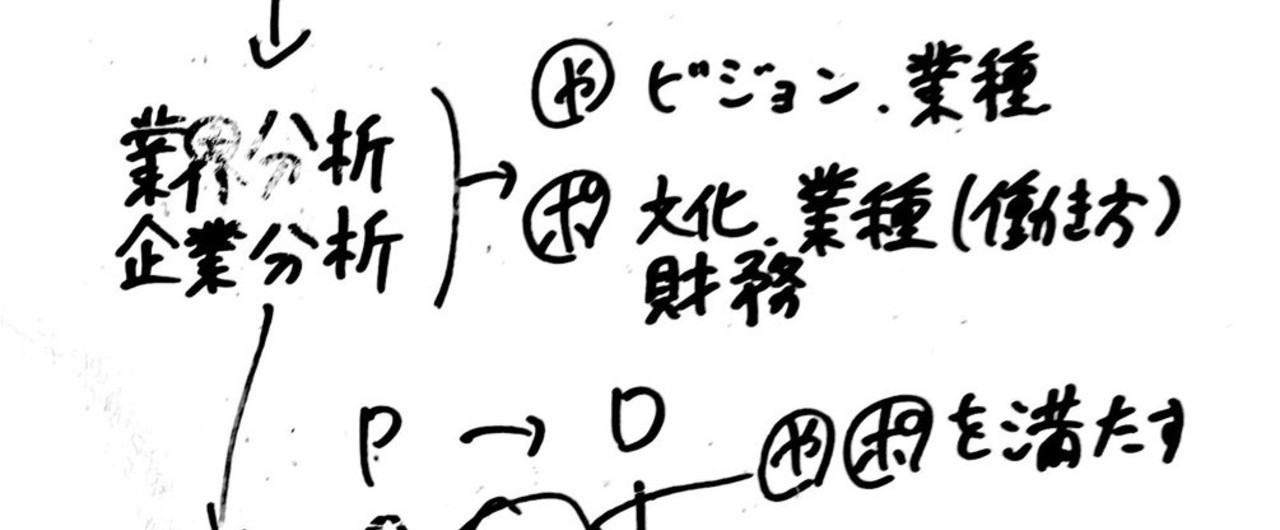 業界分析
企業分析
や ビジョン.業種
ポ 文化.業種(働き方)
財務
P → D
やポを満たす